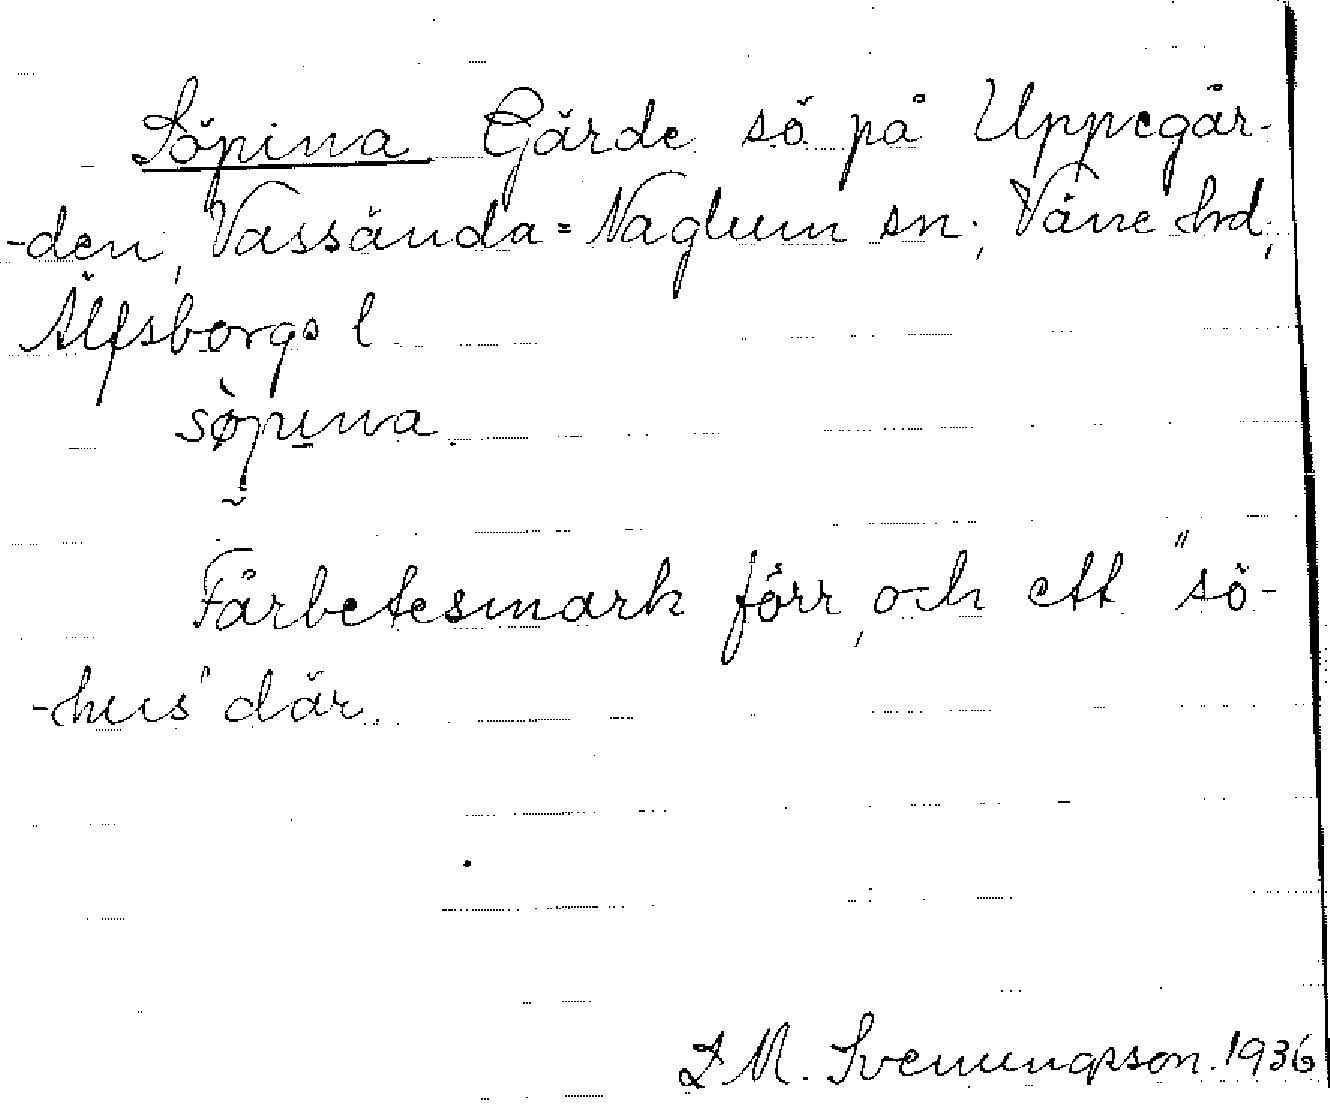 Söpinna Gärde sö på Uppegår-
-den, Vassända=Naglum sn., Väne hd,
Älfsborgs l
sòpınna
Fårbetesmark förr, och ett "sö-
-hus" där.
I. M. Svenungsson. 1936